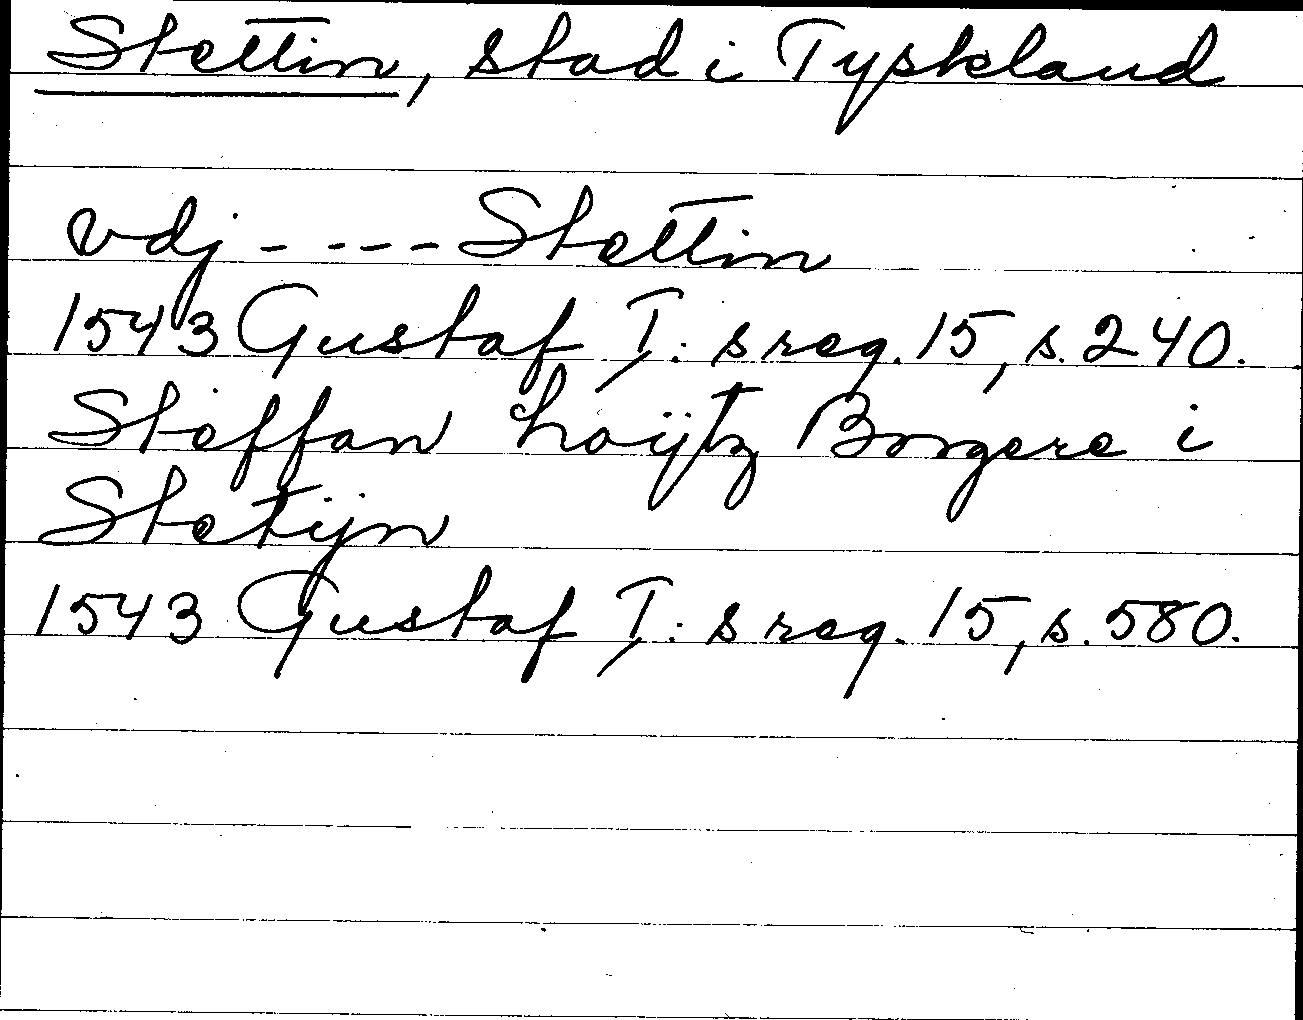 Stettin, stad i Tyskland
vdj - - - - Stettin
1543 Gustaf I: s reg. 15, s. 240.
Steffan Loÿtz Borgere i
Stetÿn
1543 Gustaf I: s reg. 15, s. 580.